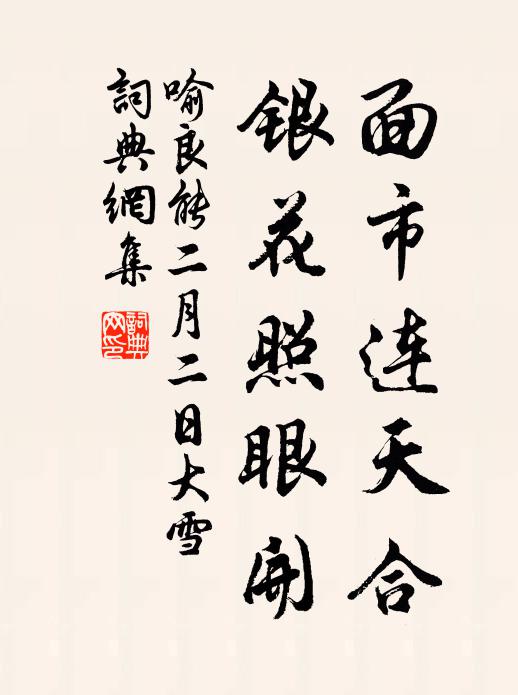 面市连天合
银花照眼开
喻良能二月二日大雪
詞典網集
詞典网印